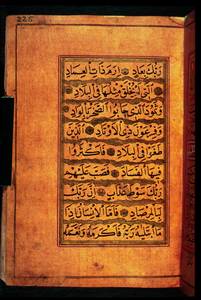 رَبُّكَ بِعَادٍ اِرَمَ ذَاتِ الْعِمَادِ
الَّتِي لَمْ يُخْلَقْ مِثْلُهَا فِي الْبِلَادِ
وَثَمُودَ الَّذِينَ جَابُوا الصَّخْرَ بِالْوَادِ
وَفِرْعَوْنَ ذِي الْاَوْتَادِ الَّذِينَ
طَغَوْا فِي الْبِلَادِ فَاَكْثَرُوا
فِيهَا الْفَسَادَ فَصَبَّ عَلَيْهِمْ
رَبُّكَ سَوْطَ عَذَابٍ اِنَّ رَبَّكَ
لَبِالْمِرْصَادِ فَاَمَّا الْاِنْسَانُ اِذَا
مَا ابْتَلٰيهُ رَبُّهُ فَاَكْرَمَهُ وَنَعَّمَهُ